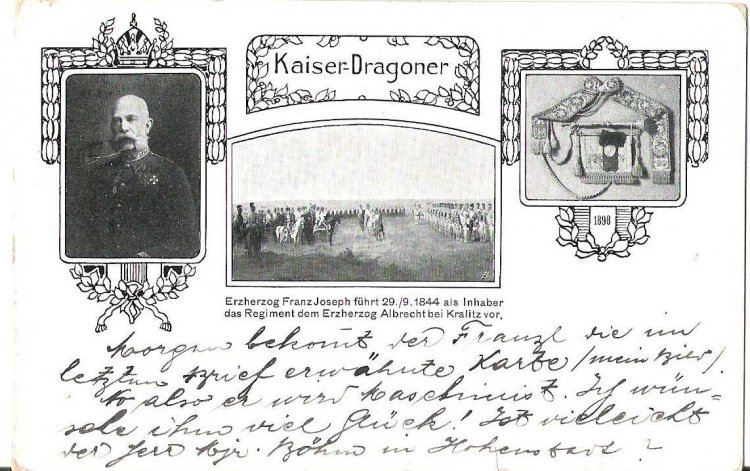 Kaiser-Dragoner
1898
Erzherzog Franz Joseph führt 29./9. 1844 als Inhaber
das Regiment dem Erzherzog Albrecht bei Kralitz vor.
Morgen bekomt der Franzl die im
letzten Brief erwähnte Karte / mein Bild /
No also er wird Maschinist. Ich wün-
sche ihm viel Glück! Ist vieleicht
der Herr Mjr. Böhm in Hohenstadt?